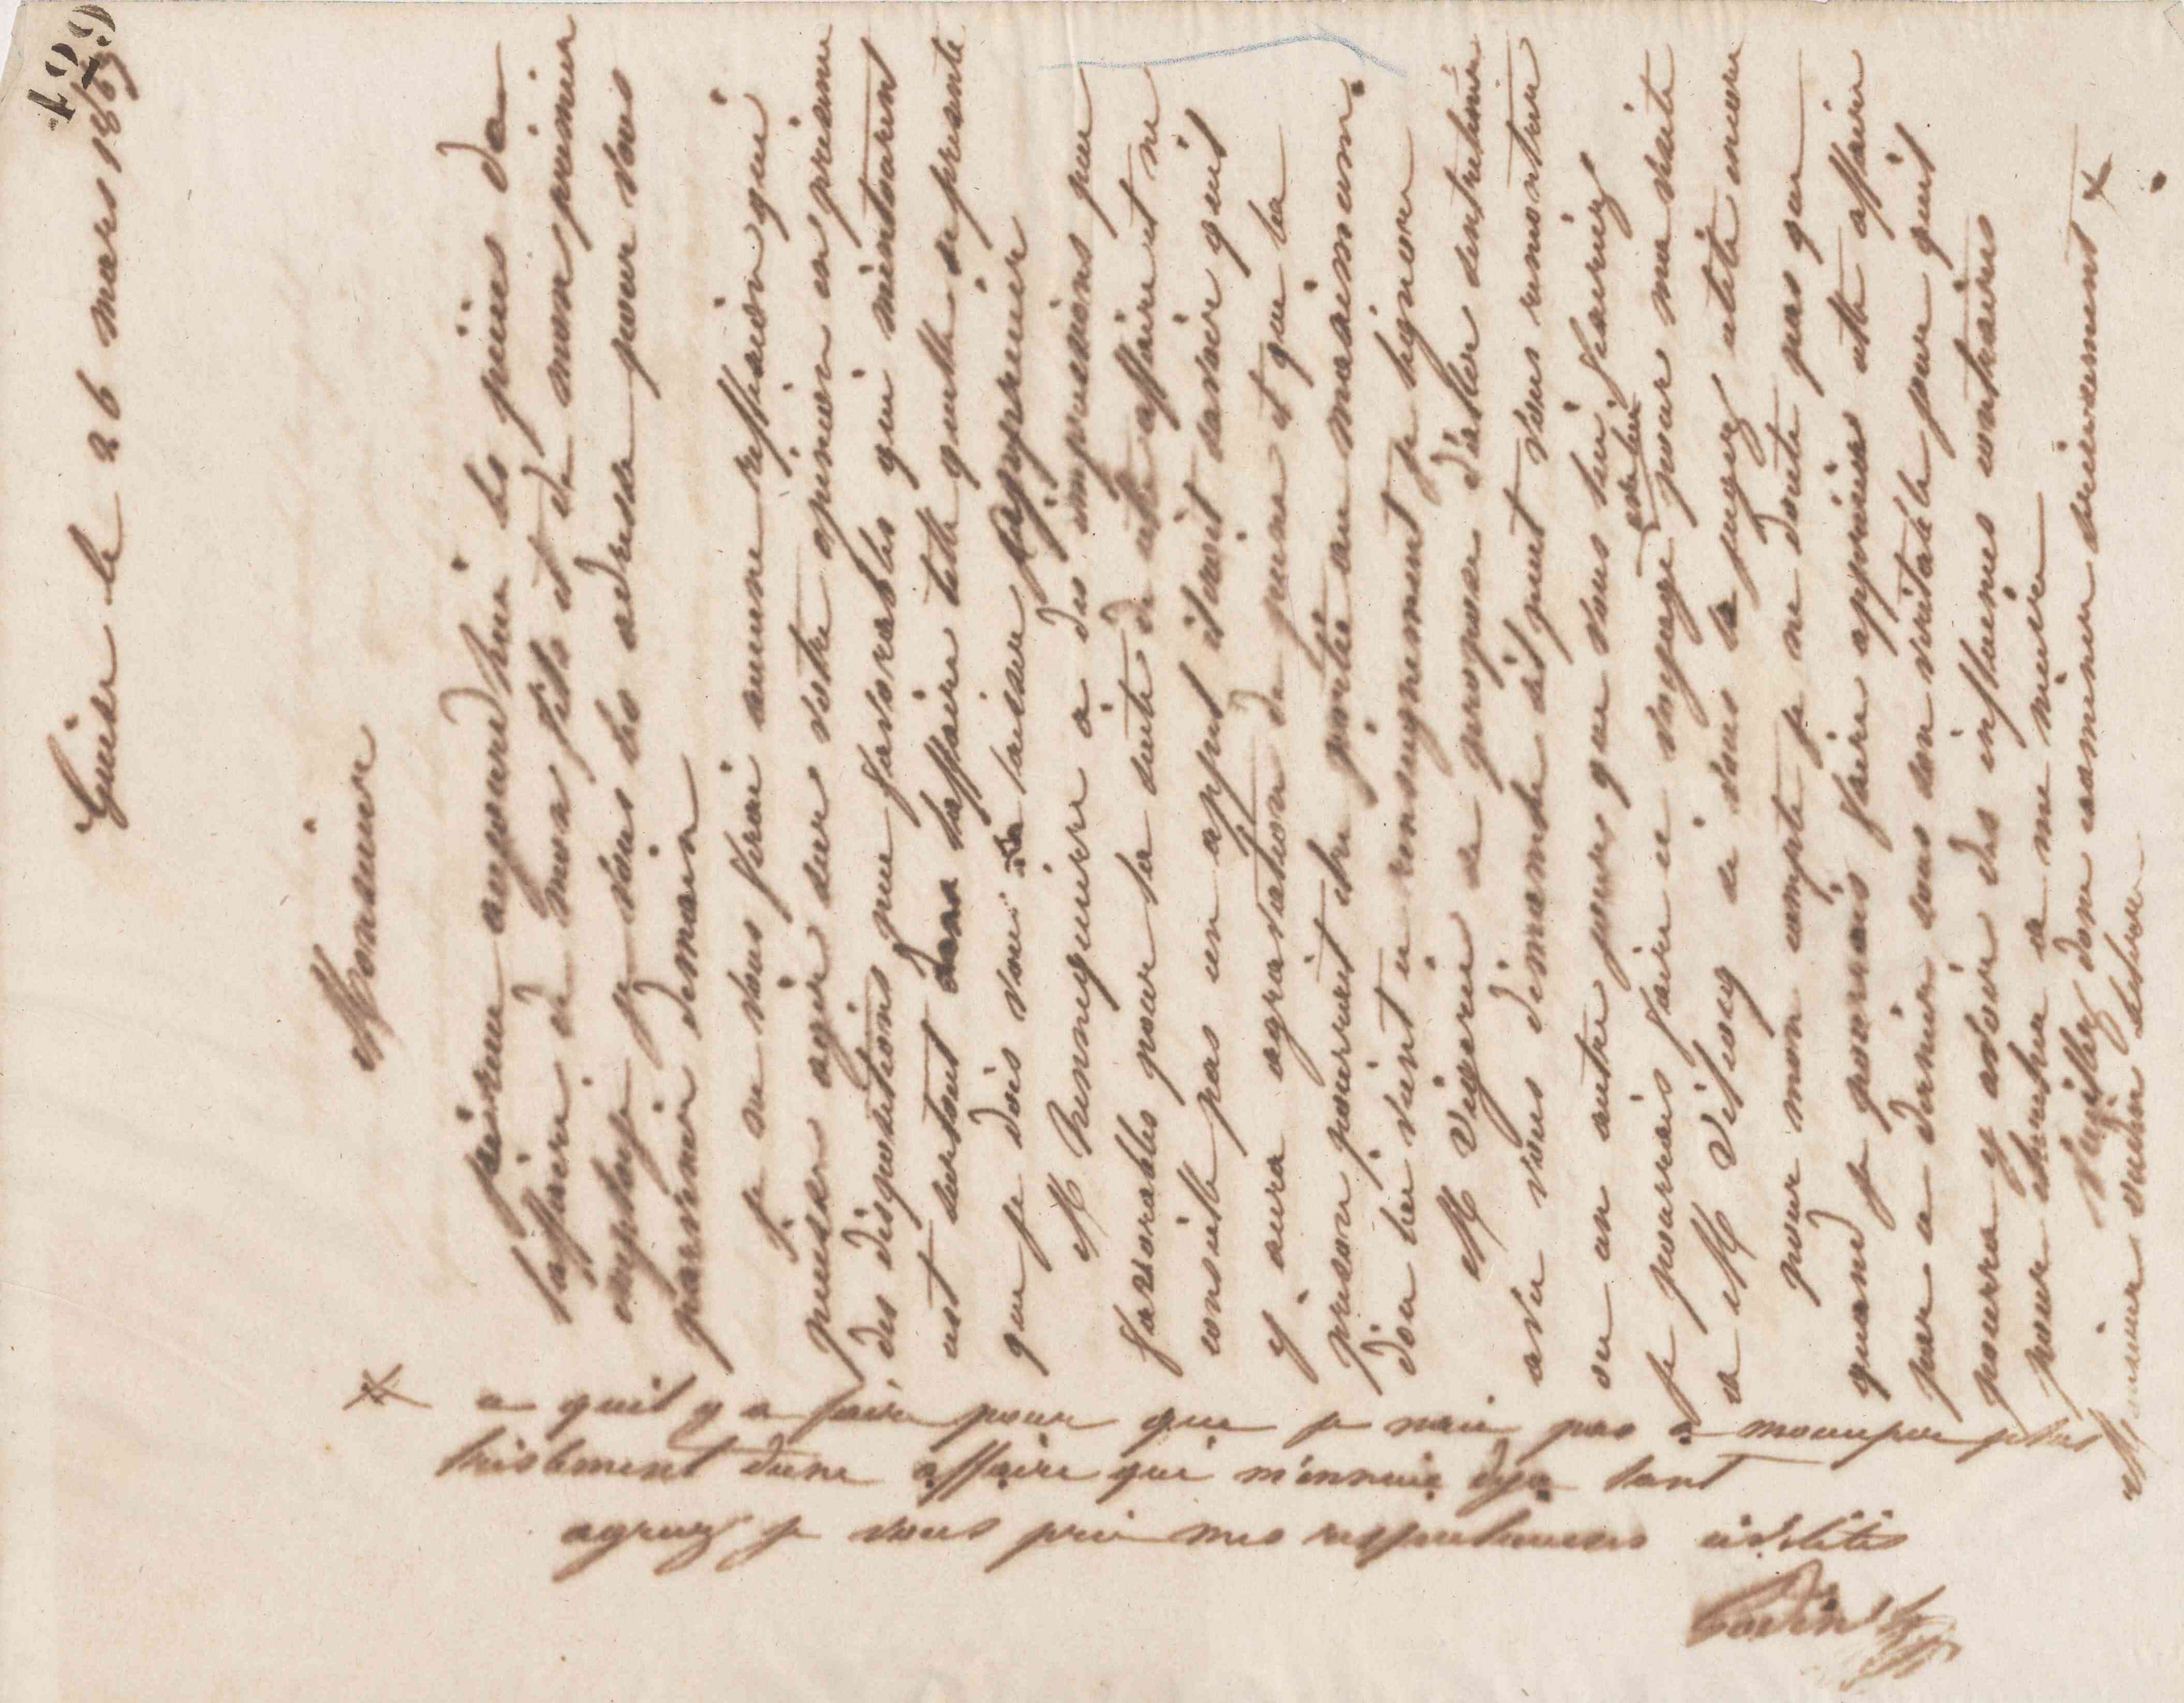 129
Guise le 26 mars 1863
Monsieur
je reçu aujourd'hui les pièces de
laffaire de mon fils et de mon premier
employé je vous les adresse pour vous
parvenir demain
je ne vous ferai aucune réflexion qui
puisse agir sur votre opinion en prenne
des dispositions que favorables qui mentourent
est surtout dans laffaire telle quelle se présente
que je dois voir la laisser apprécier
M Hennequierre a des impressions peu
favorables pour la suite de cette affaire et ne
conseille pas un appel il croit savoir quil
y aura agravation de peine et que la
prison pourrait être portée au maximum.
dou lui vient ce renseignement je lignore
M Vigerie se propose d'aller s'entretenir
avec vous dimanche sil peut vous rencontrer
ou un autre jour que vous lui fixeriez
je pourrais faire ce voyage avec lui pour ma visite
a M si vous le jugez utile encore
pour mon compte je ne doute pas que
quand je pourrais faire apprécier cette affaire
par ce dernier sous son véritable jour quil
pourra y avoir des influences contraires
pour chercher a me nuire
Veuillez donc examiner sérieusement X
X ce quil y a faire pour que je naie pas a moccuper plus
tristement dune affaire qui m'ennuie deja tant
agreez je vous prie mes respectueuses civilités
Godin